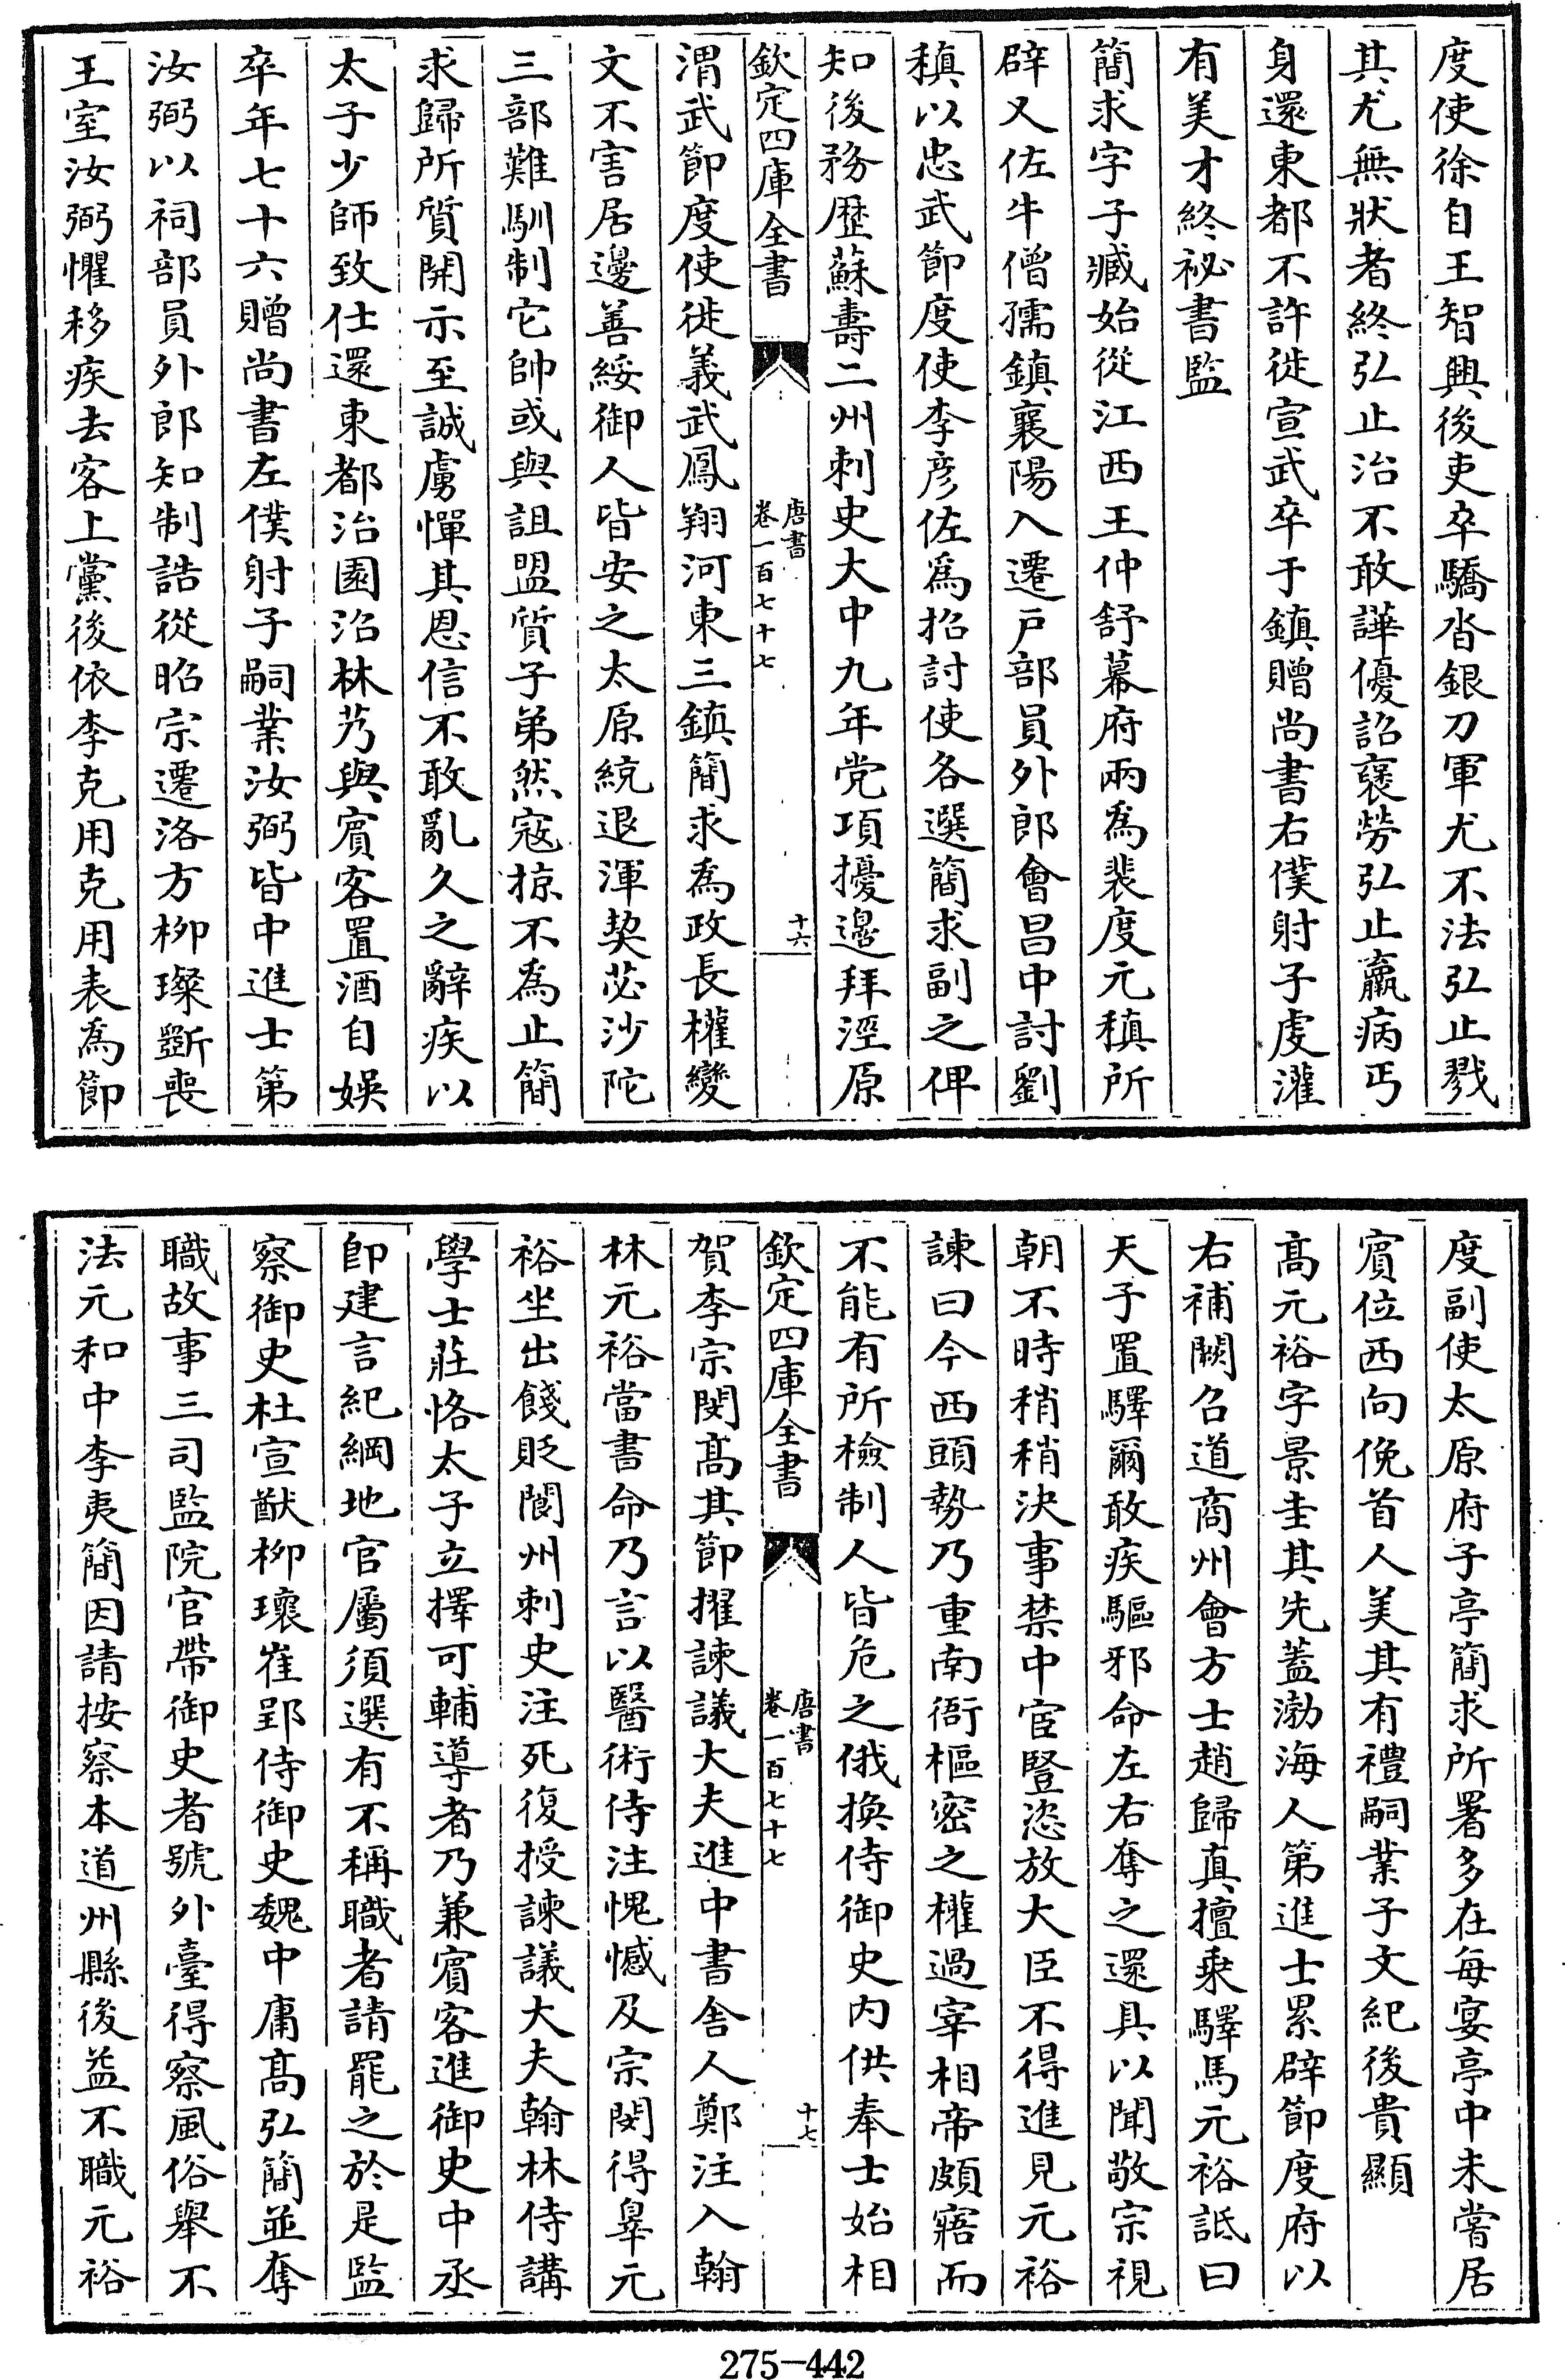 度使徐自王智興後吏卒驕沓銀刀軍尤不法弘止戮
其尤無狀者終弘止治不敢譁優詔褒勞弘止羸病丐
身還東都不許徙宣武卒于鎮贈尚書右僕射子虔灌
有美才終祕書監
簡求字子臧始從江西王仲舒幕府兩為裴度元稹所
辟又佐牛僧孺鎮襄陽入遷户部員外郎會昌中討劉
稹以忠武節度使李彦佐為招討使各選簡求副之俾
知後務歴蘇壽二州刺史大中九年党項擾邊拜涇原
欽定四庫全書
唐書
卷一百七十七
十六
渭武節度使徙義武鳳翔河東三鎮簡求為政長權變
文不害居邊善綏御人皆安之太原統退渾契苾沙陀
三部難馴制它帥或與詛盟質子弟然寇掠不為止簡
求歸所質開示至誠虜憚其恩信不敢亂久之辭疾以
太子少師致仕還東都治園沼林艿與賓客置酒自娛
卒年七十六贈尚書左僕射子嗣業汝弼皆中進士第
汝弼以祠部員外郎知制誥從昭宗遷洛方柳璨斲喪
王室汝弼懼移疾去客上黨後依李克用克用表為節
度副使太原府子亭簡求所署多在每宴亭中未嘗居
賓位西向俛首人美其有禮嗣業子文紀後貴顯
髙元裕字景圭其先蓋渤海人第進士累辟節度府以
右補闕召道商州會方士趙歸真擅乗驛馬元裕詆曰
天子置驛爾敢疾驅邪命左右奪之還具以聞敬宗視
朝不時稍稍決事禁中宦豎恣放大臣不得進見元裕
諫曰今西頭勢乃重南衙樞密之權過宰相帝頗寤而
不能有所檢制人皆危之俄換侍御史内供奉士始相
欽定四庫全書
唐書
卷一百七十七
十七
賀李宗閔髙其節擢諫議大夫進中書舍人鄭注入翰
林元裕當書命乃言以醫術侍注愧憾及宗閔得辠元
裕坐出餞貶閬州刺史注死復授諫議大夫翰林侍講
學士莊恪太子立擇可輔導者乃兼賓客進御史中丞
即建言紀綱地官屬須選有不稱職者請罷之於是監
察御史杜宣猷柳瓌崔郢侍御史魏中庸髙弘簡並奪
職故事三司監院官帶御史者號外臺得察風俗舉不
法元和中李夷簡因請按察本道州縣後益不職元裕
275-442